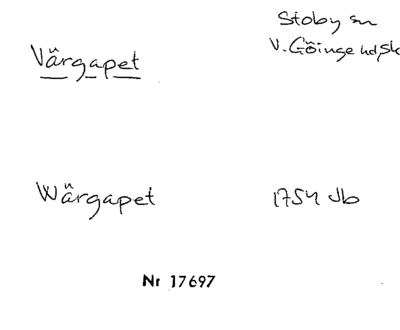 Värgapet
Stoby sn
V. Göinge hd, Sk
Wärgapet
1754 Jb
Nr 17697